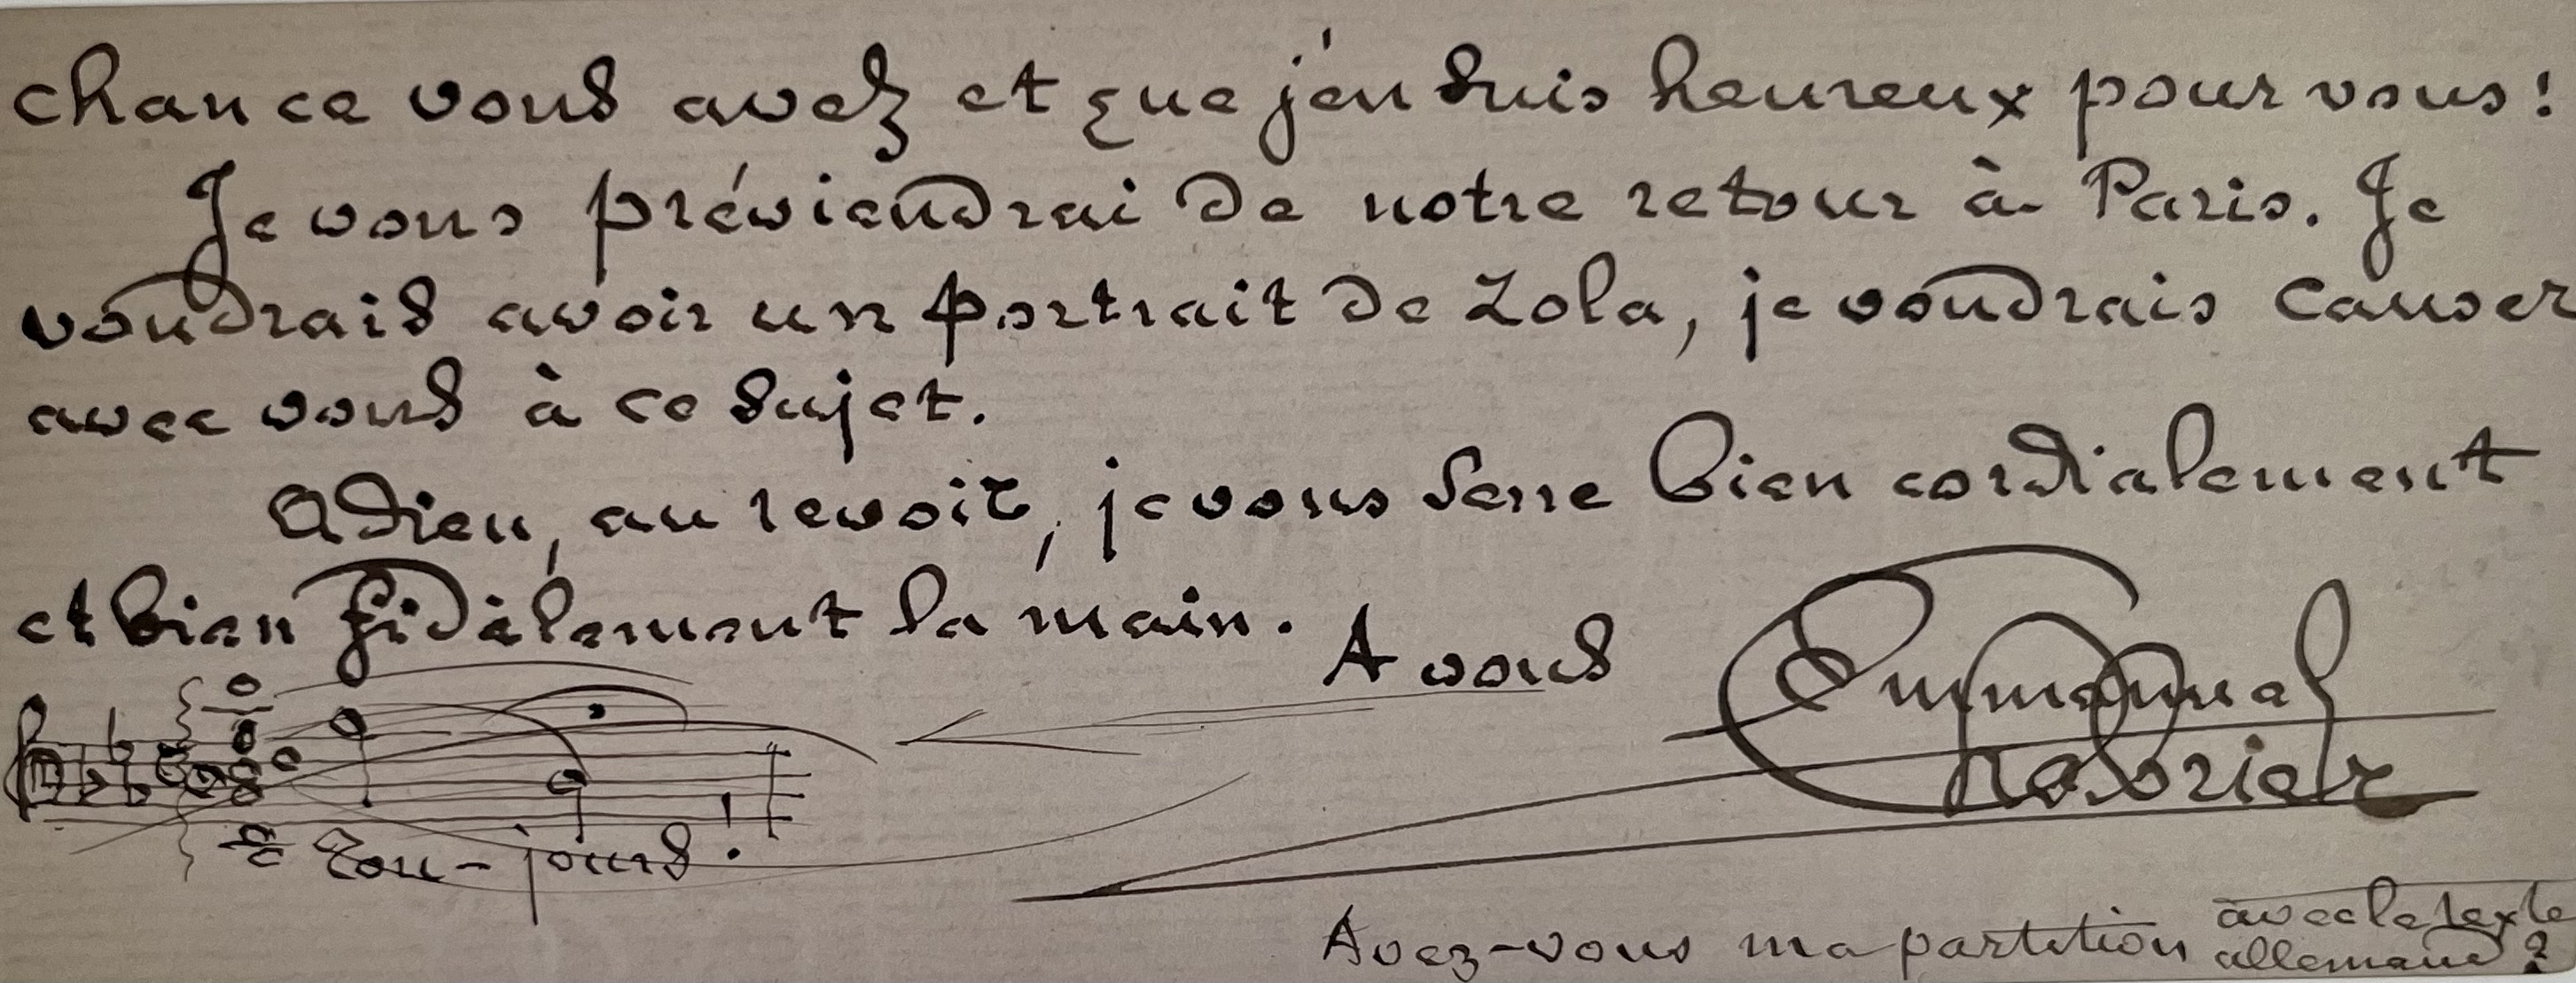 chance vous avez et que j'en suis heureux pour vous!
Je vous préviendrai de notre retour à Paris. Je
voudrais avoir un portrait de Zola, je voudrais causer
avec vous à ce sujet.
Adieu, au revoir, je vous serre bien cordialement
et bien fidèlement la main.
A vous
Emmanuel
Chabrier
Tou-jours!
Avez-vous ma partition avec le texte
allemand?